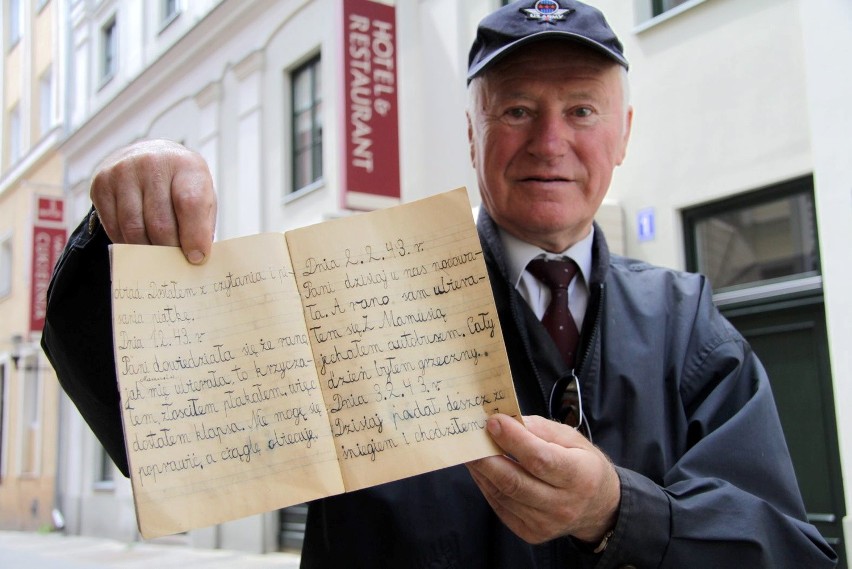 HOTEL &
RESTAURANT
1
Dostałem z czytania i pi-
sania piątkę.
Dnia 1.2.43.r
Pani dowiedziała się że rano
jak mię ubierała, to krzycza-
łem, złościłem płakałem, więc
dostałem klapsa. Nie mogę się
poprawić, a ciągle obiecuję.
Dnia 2.2.43.r
Pani dzisiaj u nas nocowa-
ła. A rano sam ubiera-
łem się. Z Mamusią
jechałem autobusem. Cały
dzień byłem grzeczny.
Dnia 3.2.43.r
Dzisiaj padał deszcz ze
śniegiem i chodziłem